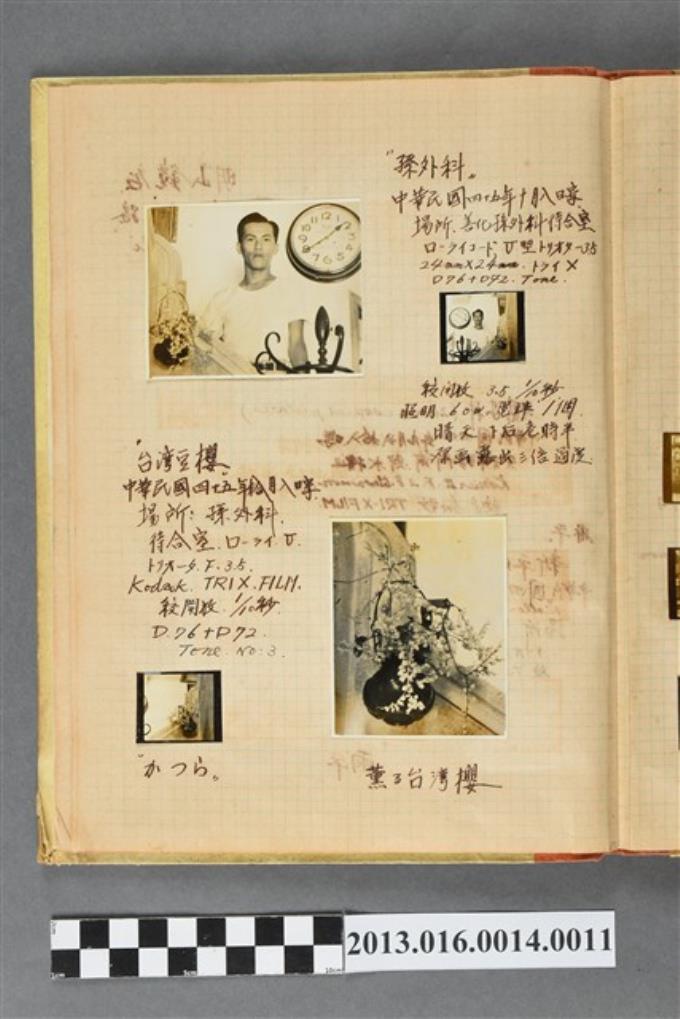 "孫外科"
中華民國四十五年十月入日寫
場所.善化孫外科待合室
ローライコード.V型トリオター3.5
24mm×24mm.トライX
D76+D72.Tone.
絞開放 3.5 1/10秒
照明.60W.電球.1個
晴天下后
"台湾豆櫻"
中華民國四十五年拾月入日寫
場所:孫外科
待合室.ローライ.V.
トリオータ.F.3.5.
Kodack.TRI X.FILM.
絞開放.1/10秒
D.76+D72.
Tone.No:3.
"かつら"
薫る台湾櫻
2013.016.0014.0011